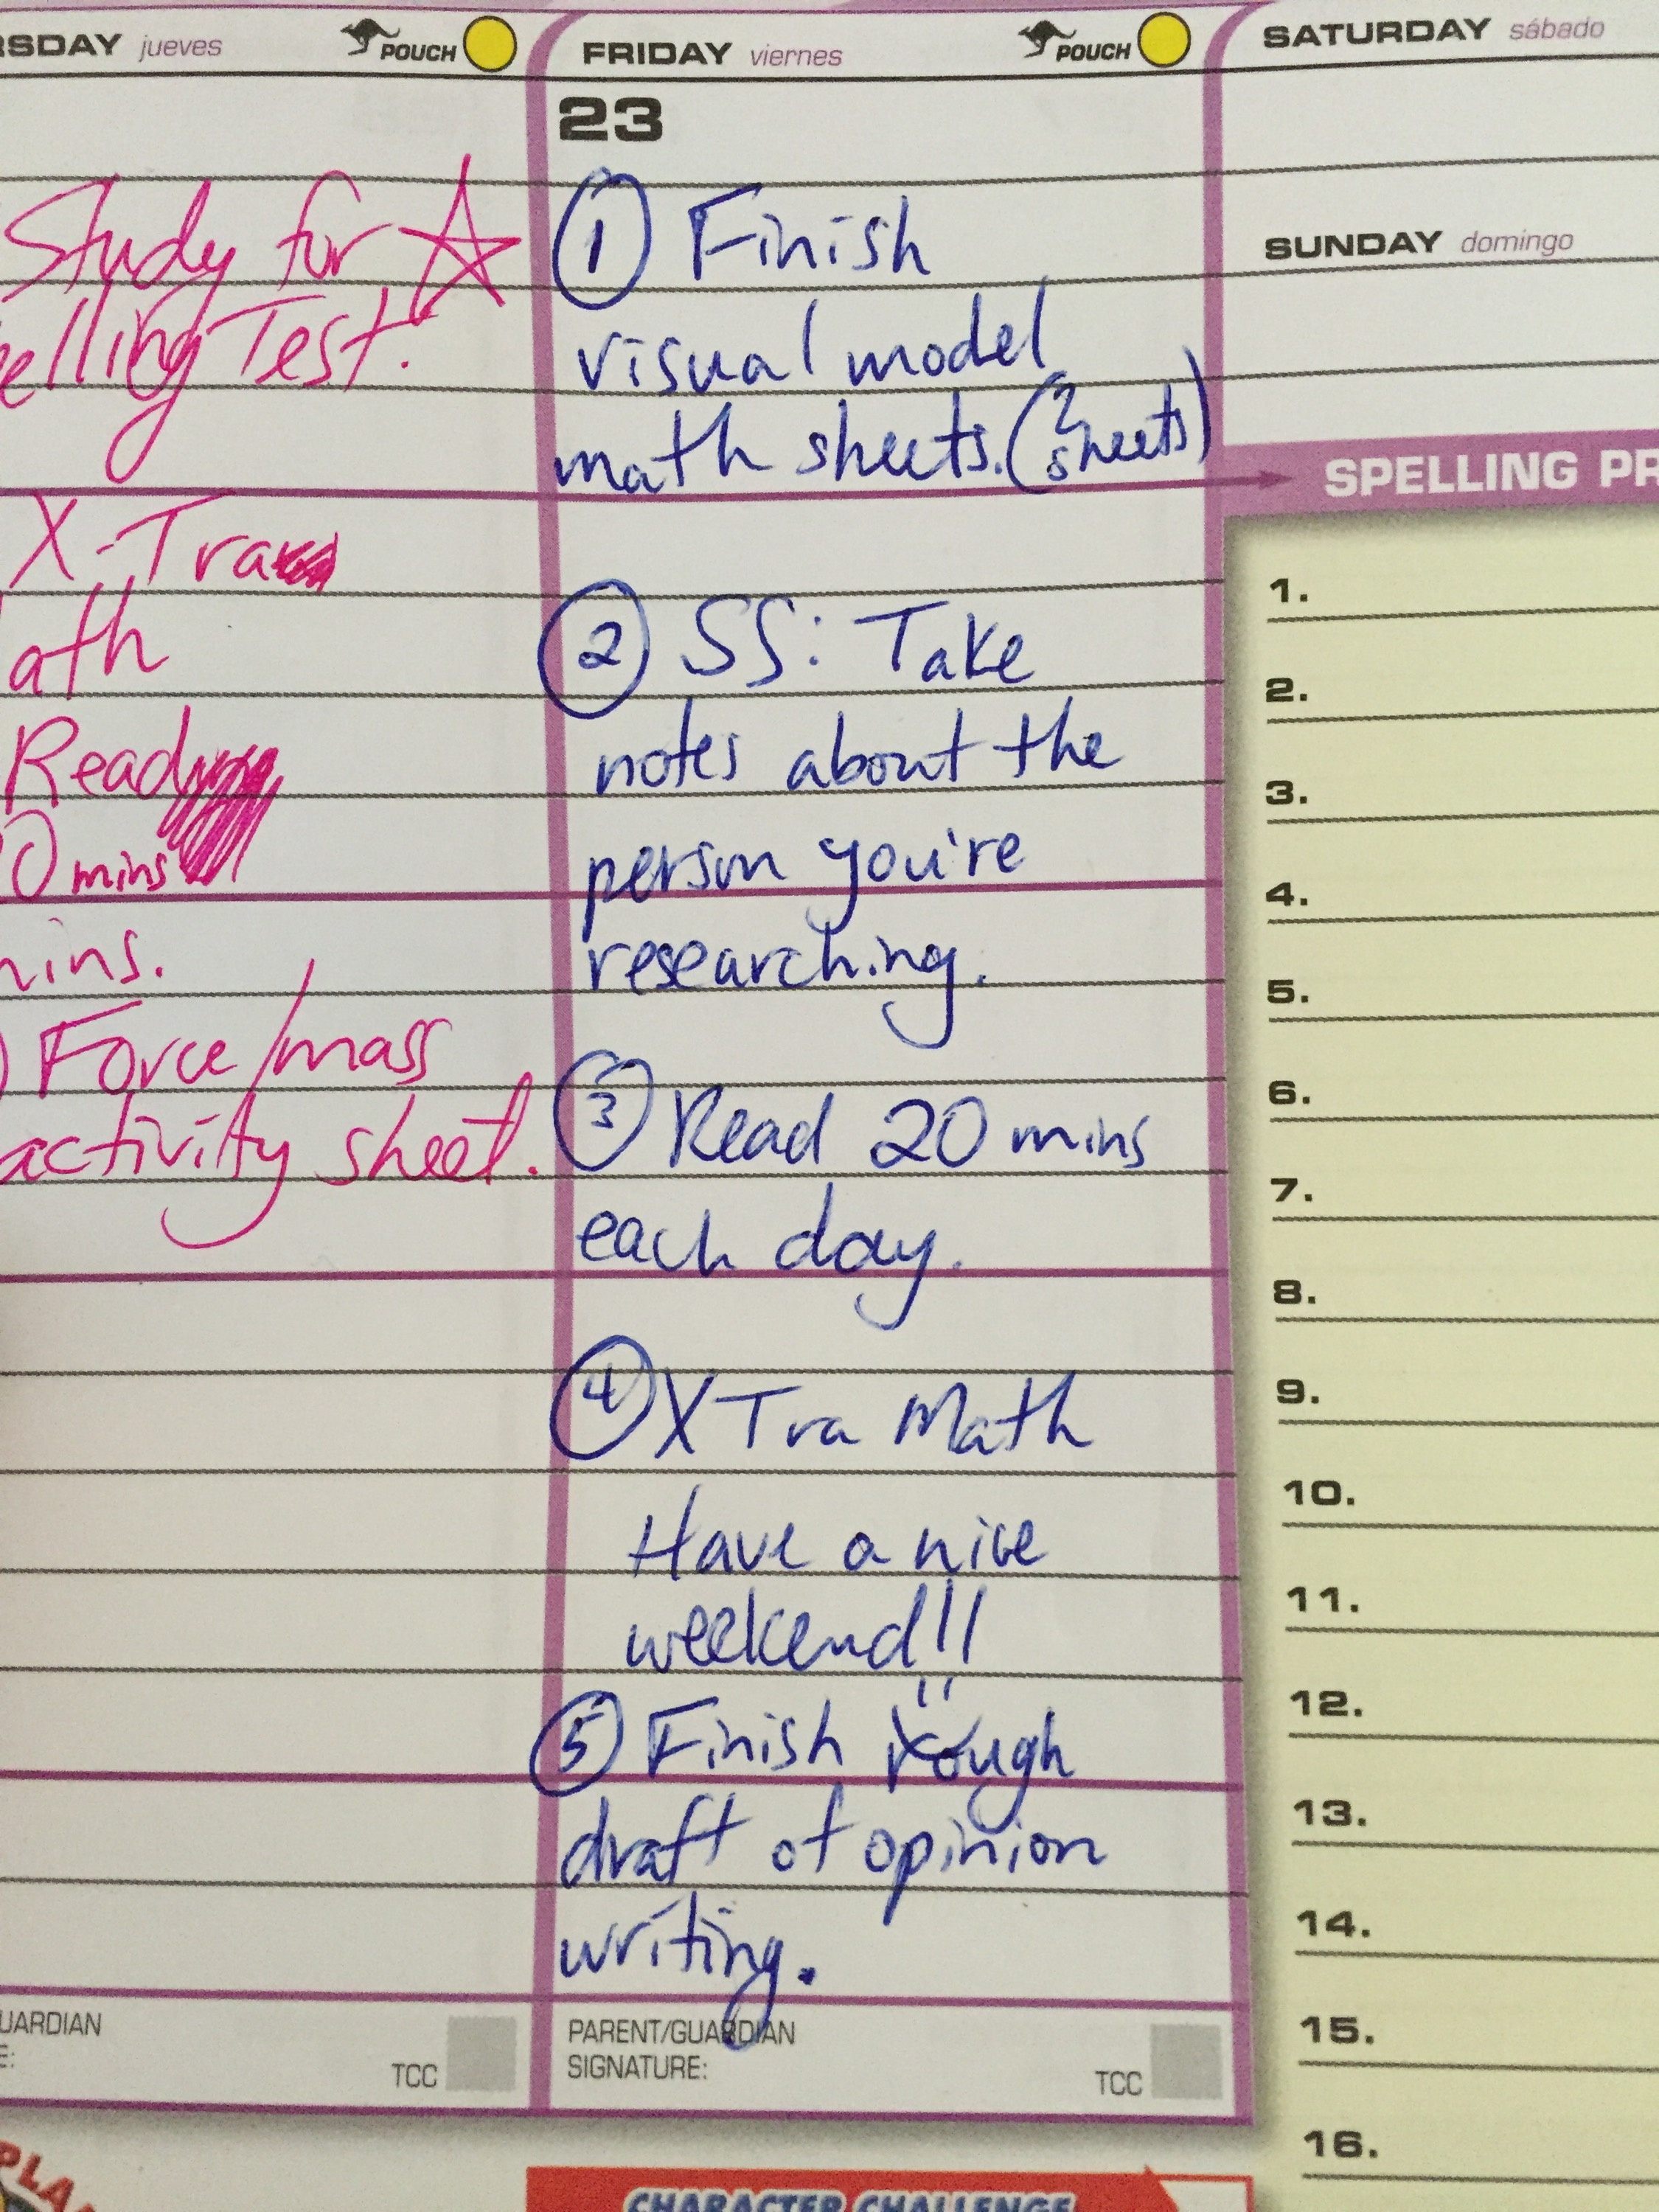 RSDAY jueves
POUCH
Study for ☆
elling Test.
X-Tra
ath
Read
0 mins
mins.
Force/mass
activity sheet.
UARDIAN
E:
TCC
FRIDAY viernes
POUCH
23
① Finish
visual model
math sheets. (2 sheets)
② SS: Take
notes about the
person you're
researching.
③ Read 20 mins
each day.
④ X Tra Math
Have a nice
weekend!!
⑤ Finish rough
draft of opinion
writing.
PARENT/GUARDIAN
SIGNATURE:
TCC
SATURDAY sábado
SUNDAY domingo
SPELLING PR
1.
2.
3.
4.
5.
6.
7.
8.
9.
10.
11.
12.
13.
14.
15.
16.
PLA
CHARACTER CHALLENGE